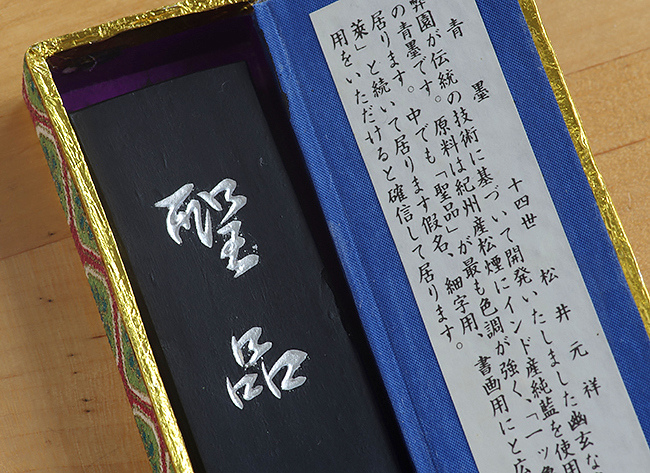 青墨 十四世 松井元祥
弊園が伝統の技術に基づいて開発いたしました幽玄な
の青墨です。原料は紀州産松煙にインド産純藍を使用
居ります。中でも「聖品」が最も色調が強く、「一ッ
萊」と続いて居ります假名、細字用、書画用にと広
用をいただけると確信して居ります。
聖品